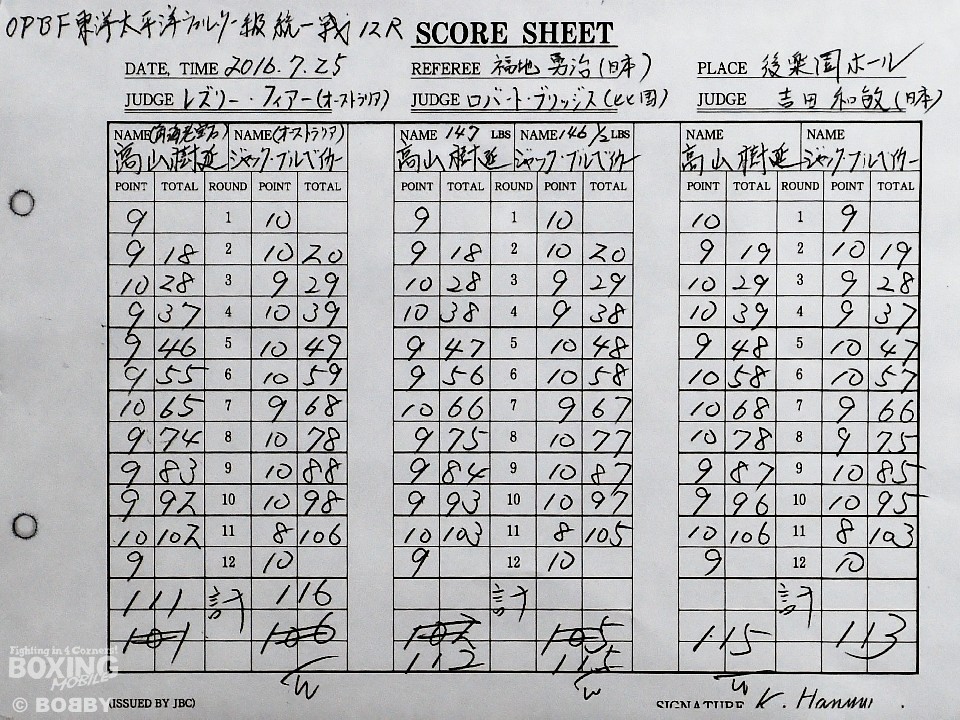 OPBF東洋太平洋ウェルター級統一戦 12R SCORE SHEET
DATE, TIME 2016.7.25 REFEREE 福地 勇治(日本) PLACE 後楽園ホール
JUDGE レズリー・フィアー(オーストラリア) JUDGE ロバート・ブリッジス(比国) JUDGE 吉田 和敏(日本)
NAME(角海老宝石) NAME(オーストラリア) NAME 147 LBS NAME 146 1/2 LBS NAME NAME
高山樹延 ジャック・ブルベイカー 高山樹延 ジャック・ブルベイカー 高山樹延 ジャック・ブルベイカー
POINT TOTAL ROUND POINT TOTAL POINT TOTAL ROUND POINT TOTAL POINT TOTAL ROUND POINT TOTAL
9 1 10 9 1 10 10 1 9
9 18 2 10 20 9 18 2 10 20 9 19 2 10 19
10 28 3 9 29 10 28 3 9 29 10 29 3 9 28
9 37 4 10 39 10 38 4 9 38 10 39 4 9 37
9 46 5 10 49 9 47 5 10 48 9 48 5 10 47
9 55 6 10 59 9 56 6 10 58 10 58 6 10 57
10 65 7 9 68 10 66 7 9 67 10 68 7 9 66
9 74 8 10 78 9 75 8 10 77 10 78 8 9 75
9 83 9 10 88 9 84 9 10 87 9 87 9 10 85
9 92 10 10 98 9 93 10 10 97 9 96 10 10 95
10 102 11 8 106 10 103 11 8 105 10 106 11 8 103
9 12 10 9 12 10 9 12 10
111 計 116 計 計
101 106 102 105 115 113
112 115
W W W
Fighting in 4 Corners!
BOXING
MOBILE
© BOBBY
(ISSUED BY JBC) SIGNATURE